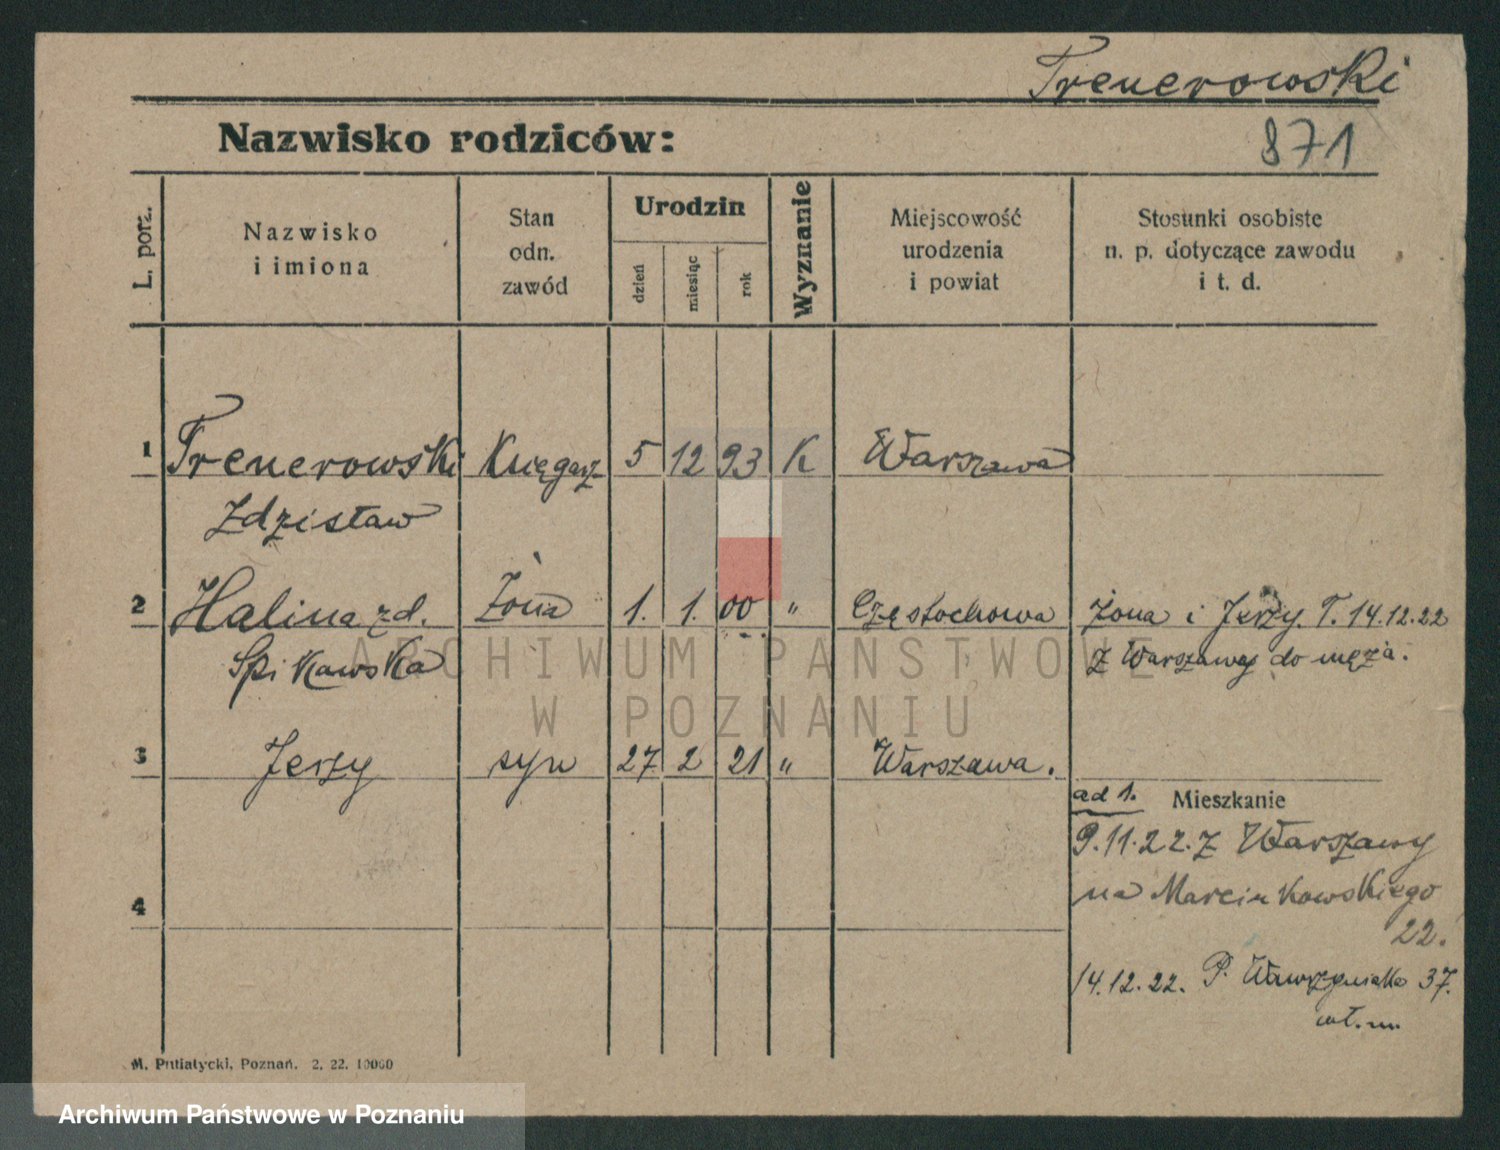 Trenerowski
Nazwisko rodziców:
871
L. porz.
Nazwisko
i imiona
Stan
odn.
zawód
Urodzin
dzień
miesiąc
rok
Wyznanie
Miejscowość
urodzenia
i powiat
Stosunki osobiste
n. p. dotyczące zawodu
i t. d.
1 Trenerowski Księgarz 5 12 93 K Warszawa
Zdzisław
2 Halina zd. Żona 1. 1. 00 " Częstochowa Żona i Jerzy T. 14.12.22
Spikowska z Warszawy do męża.
ARCHIWUM PAŃSTWOWE
W POZNANIU
3 Jerzy syn 27 2 21 " Warszawa.
ad 1. Mieszkanie
9.11.22. z Warszawy
na Marcinkowskiego
22.
4
14.12.22. P. Wawrzyniaka 37.
wł. m.
M. Putiatycki, Poznań. 2. 22. 10000
Archiwum Państwowe w Poznaniu